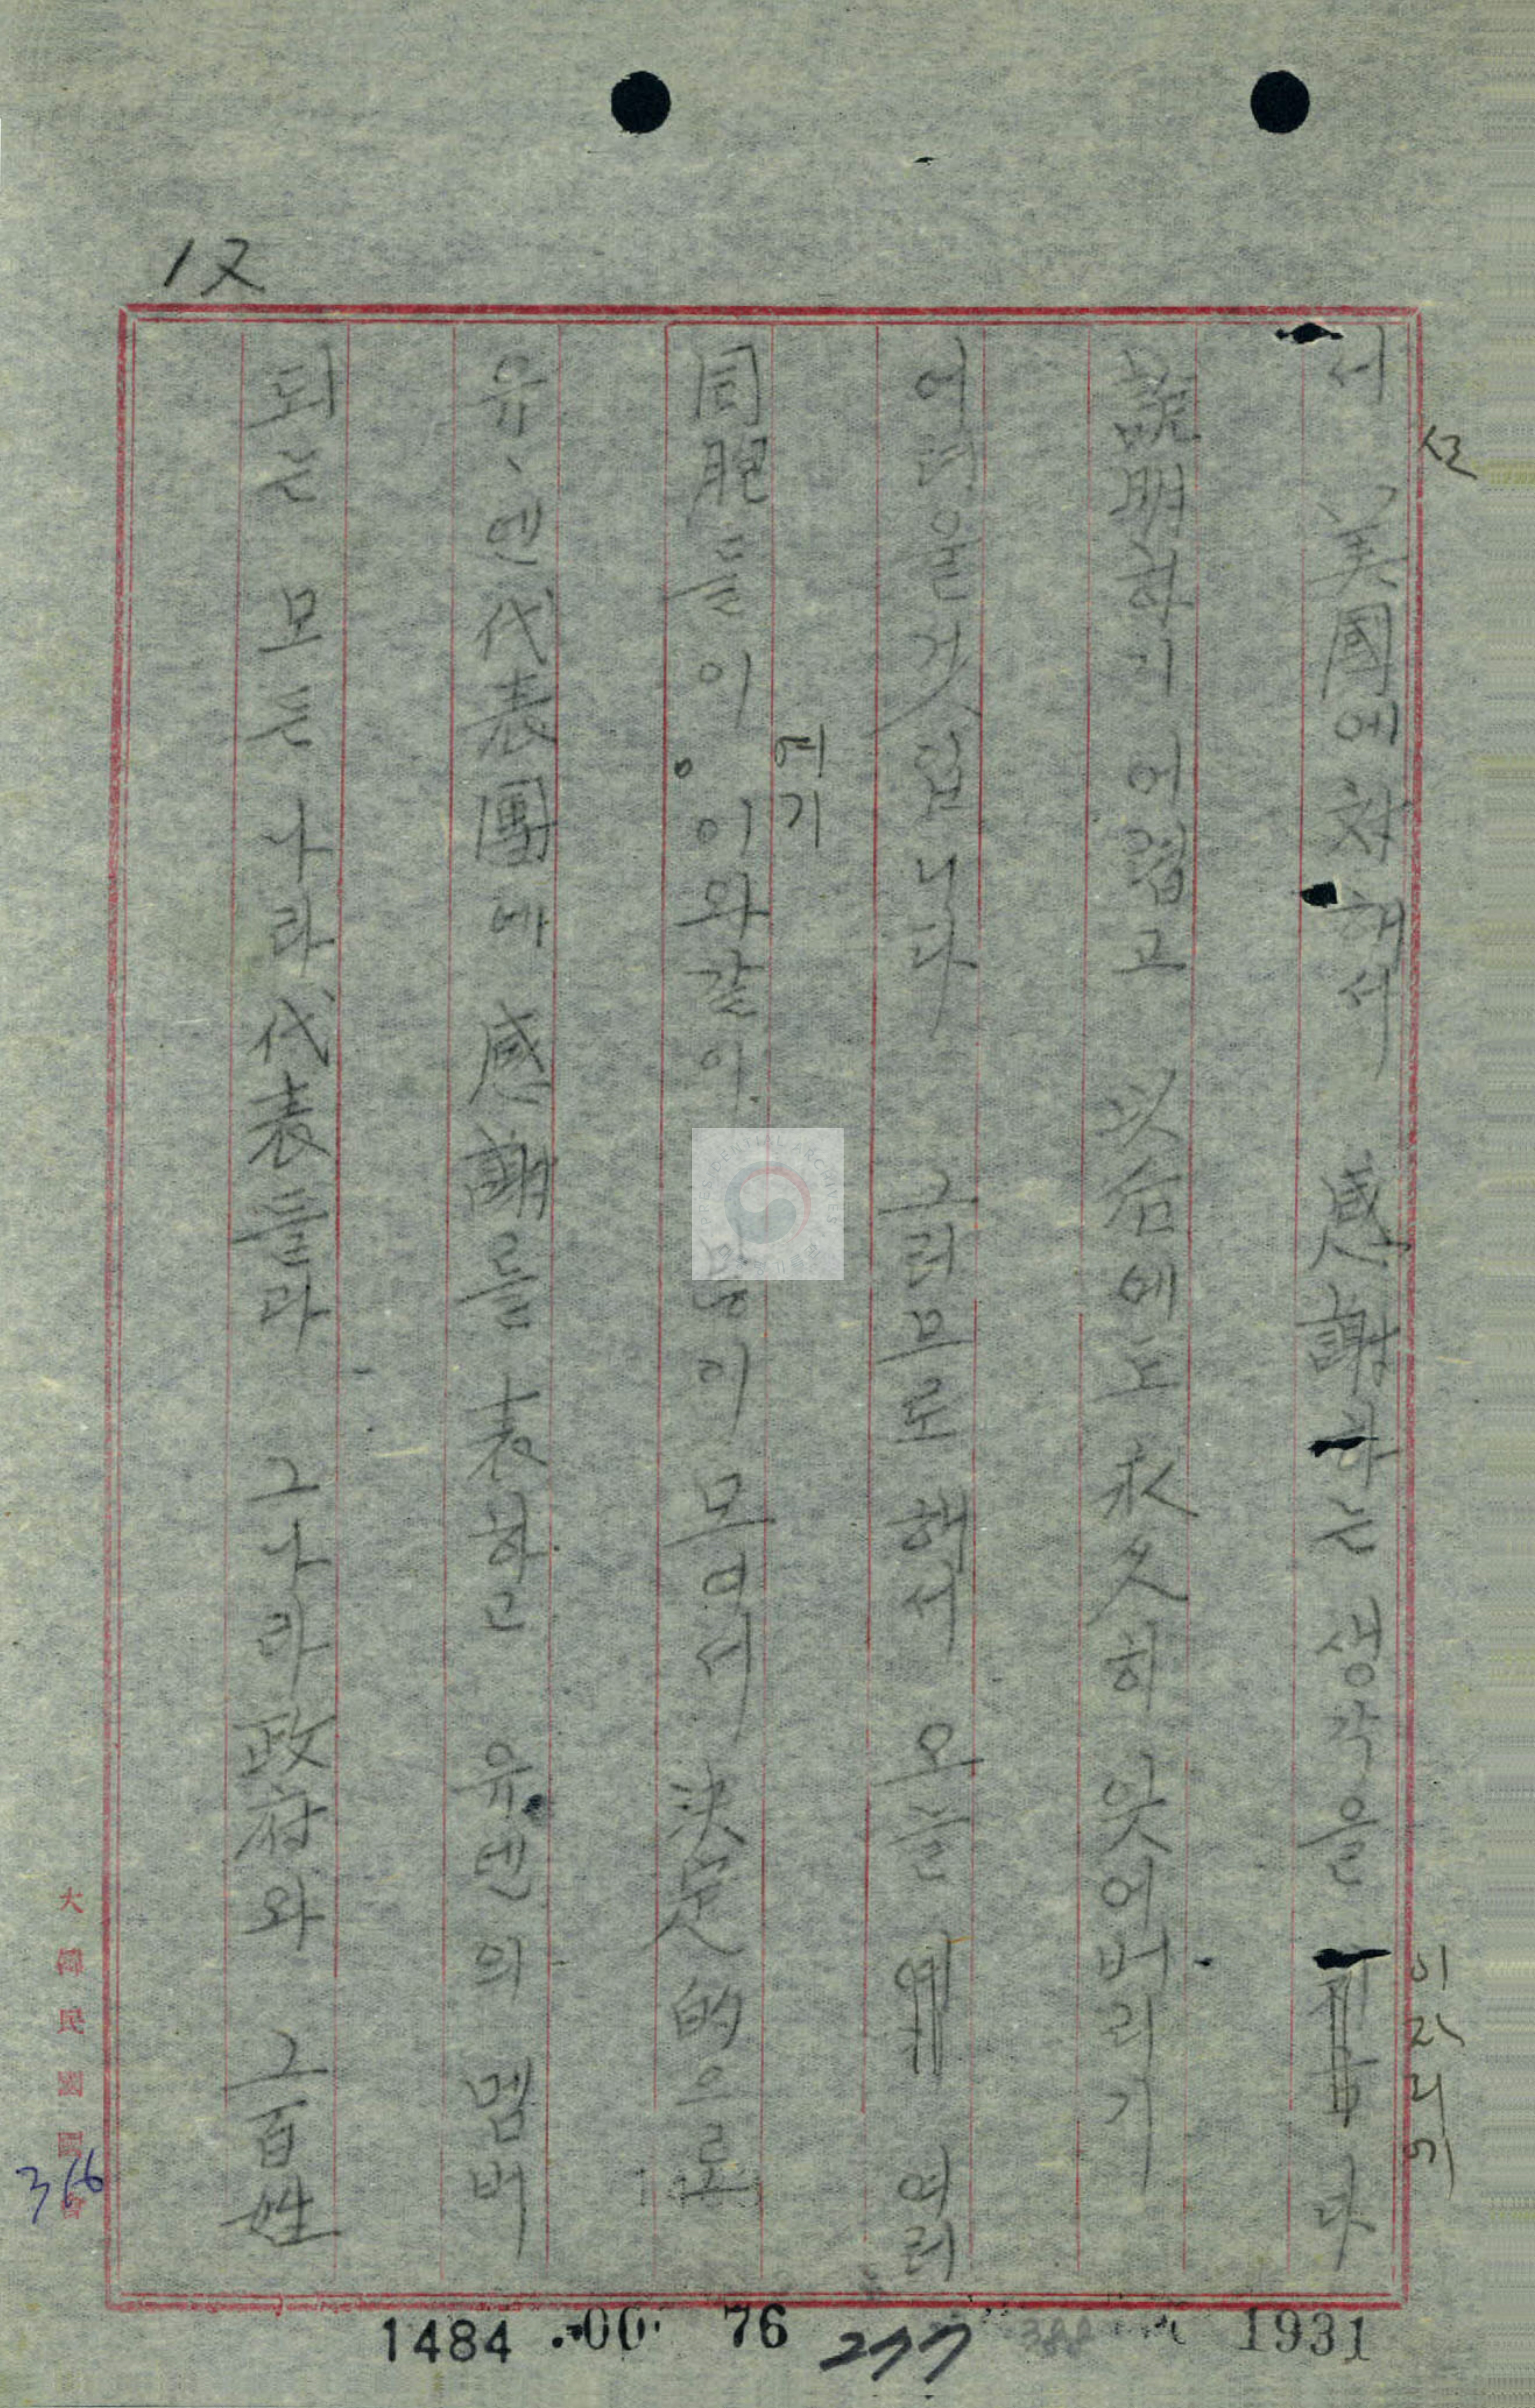 12
서 美國에 対해서 感謝하는 생각을 다
說明하기 어렵고 以后에도 永久히 잇어버리기
어려울것입니다 그러므로 해서 오늘 여러
同胞들이 이와같이 많이 모여서 決定的으로
여기
유、엔代表團에 感謝를 表하고 유엔의 멤버
되는 모든 나라代表들과 그나라政府와 그百姓
大韓民國國會
366
1484
00
76
277
1931